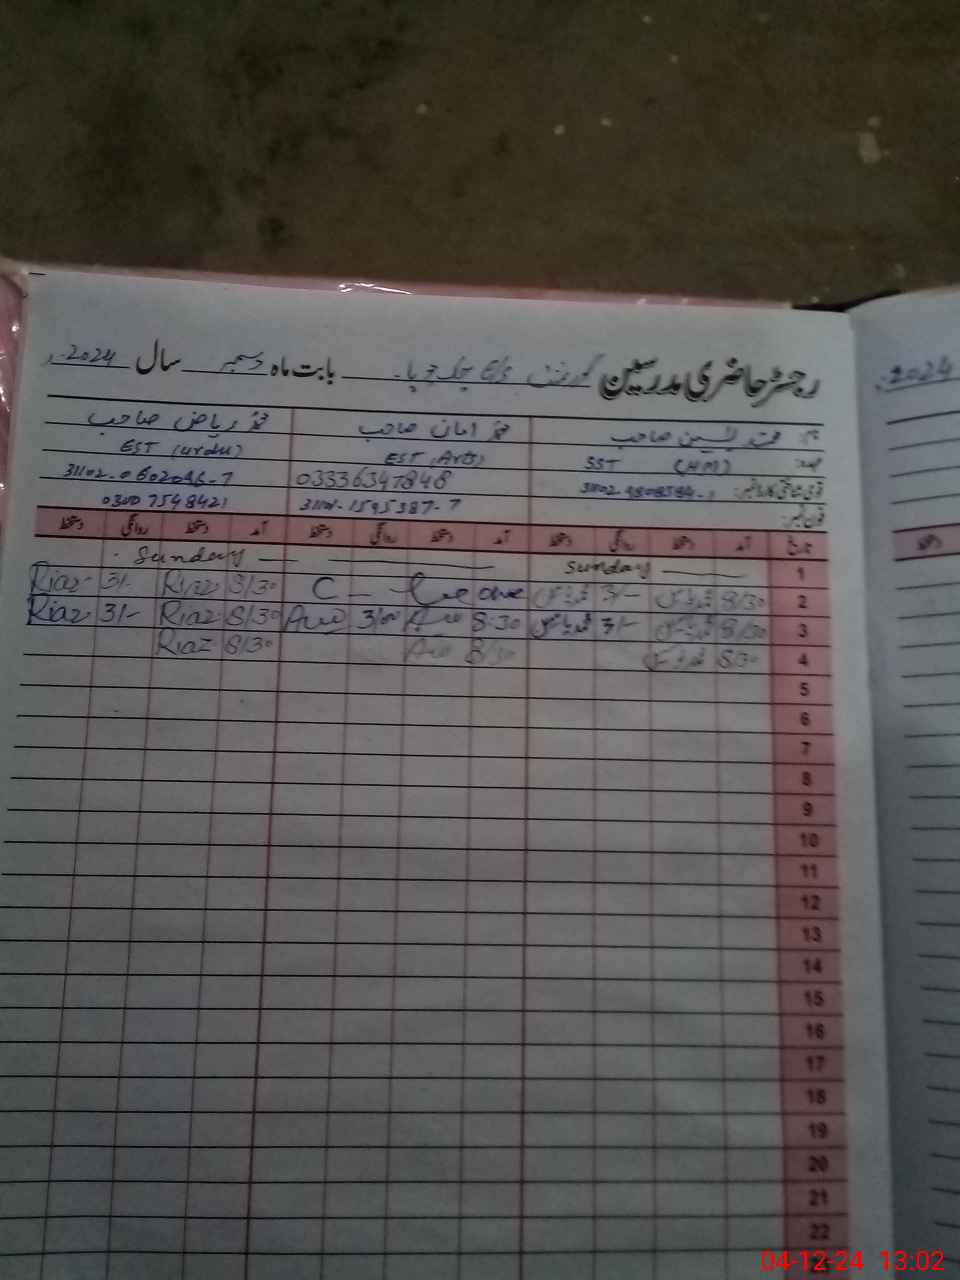 رجسٹر حاضری مدرسین گورنمنٹ بابت ماہ دسمبر سال 2024ء
2024
نام: محمد یٰسین صاحب محمد امان صاحب محمد ریاض صاحب
عہدہ SST (HM) EST (Arts) EST (urdu)
قومی شناختی کارڈ نمبر: 03336347848 31102-0602046-7
فون نمبر: 31101-1595387-7 0300 7548421
تاریخ آمد دستخط روانگی دستخط آمد دستخط روانگی دستخط آمد دستخط روانگی دستخط
دستخط
1 Sunday Sunday
2 8/30 3/- C - Leave 8/30 Riaz 3/- Riaz
3 8/30 3/- 8:30 3/00 8/30 Riaz 3/- Riaz
4 8/30 8/30 8/30 Riaz
5
6
7
8
9
10
11
12
13
14
15
16
17
18
19
20
21
22
04-12-24 13:02